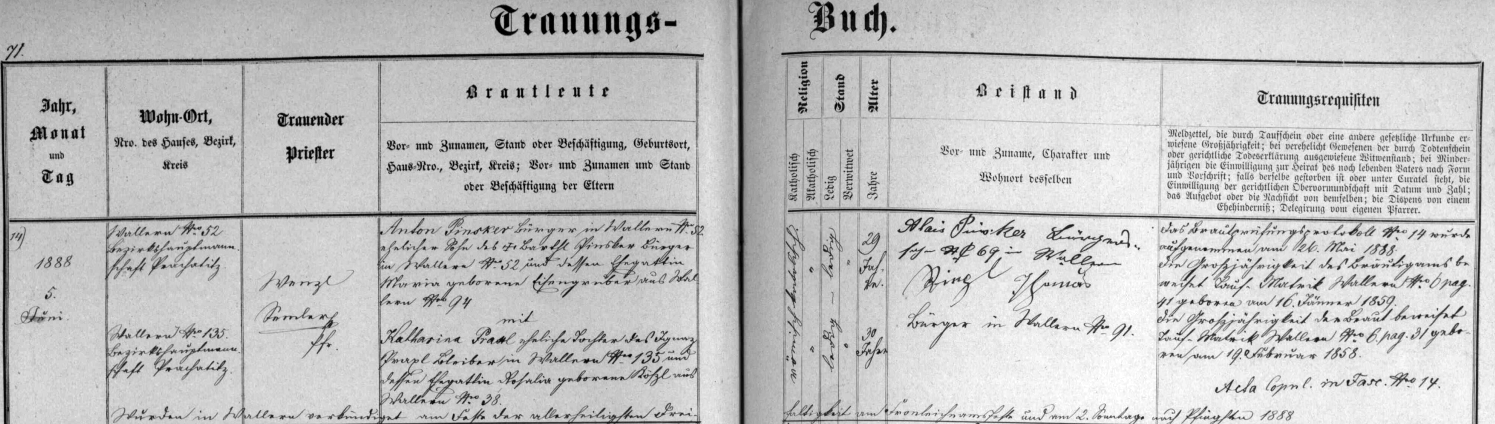 Trauungs-
Buch.
71.
Jahr,
Monat
und
Tag
Wohn-Ort,
Nro. des Hauses, Bezirk,
Kreis
Trauender
Priester
Brautleute
Vor- und Zunamen, Stand oder Beschäftigung, Geburtsort,
Haus-Nro., Bezirk, Kreis; Vor- und Zunamen und Stand
oder Beschäftigung der Eltern
Religion
Katholisch
Akatholisch
Stand
Ledig
Verwitwet
Alter
Jahre
Beistand
Vor- und Zuname, Charakter und
Wohnort desselben
Trauungsrequisiten
Meldzettel, die durch Taufschein oder eine andere gesetzliche Urkunde er-
wiesene Großjährigkeit; bei verehelicht Gewesenen der durch Todtenschein
oder gerichtliche Todeserklärung ausgewiesene Witwenstand; bei Minder-
jährigen die Einwilligung zur Heirat des noch lebenden Vaters nach Form
und Vorschrift; falls derselbe gestorben ist oder unter Curatel steht, die
Einwilligung der gerichtlichen Obervormundschaft mit Datum und Zahl;
das Aufgebot oder die Nachsicht von demselben; die Dispens von einem
Ehehinderniß; Delegirung vom eigenen Pfarrer.
14)
1888
5.
Juni.
Wallern Nro 52
Bezirkshauptmann-
schaft Prachatitz
Wallern Nro 135.
Bezirkshauptmann-
schaft Prachatitz.
Wenzl
Pfr.
Anton Pinsker Bürger in Wallern N. 52
ehelicher Sohn des Pinsker Bürger
in Wallern N. 52 und dessen Ehegattin
Maria geborene Eisengruber aus Wal
lern Nro 94
mit
Katharina Praxl eheliche Tochter des Ignaz
Praxl in Wallern Nro 135 und
dessen Ehegattin Rosalia geborene aus
Wallern N. 38.
römisch katholisch
ledig – ledig
29
Jah-
re.
30
Jahre
Alois Pinsker Bürgers-
N 69 in Wallern
Thomas
Bürger in Wallern Nro 91.
Das Brautprüfungsprotokoll Nro 14 wurde
aufgenommen am 26. Mai 1888.
Die Großjährigkeit des Bräutigams be
weiset Tauf-Matrik Wallern Nro 6 pag.
41 geboren am 16. Jänner 1859.
Die Großjährigkeit der Braut beweiset
Tauf-Matrik Wallern Nro 6. pag. 31 gebo-
ren am 19. Februar 1858.
Acta Copul. in Fasc. Nro 14.
Wurden in Wallern verkündiget am Feste der allerheiligsten Drei-
faltigkeit am Fronleichnamsfeste und am 2. Sonntage nach Pfingsten 1888